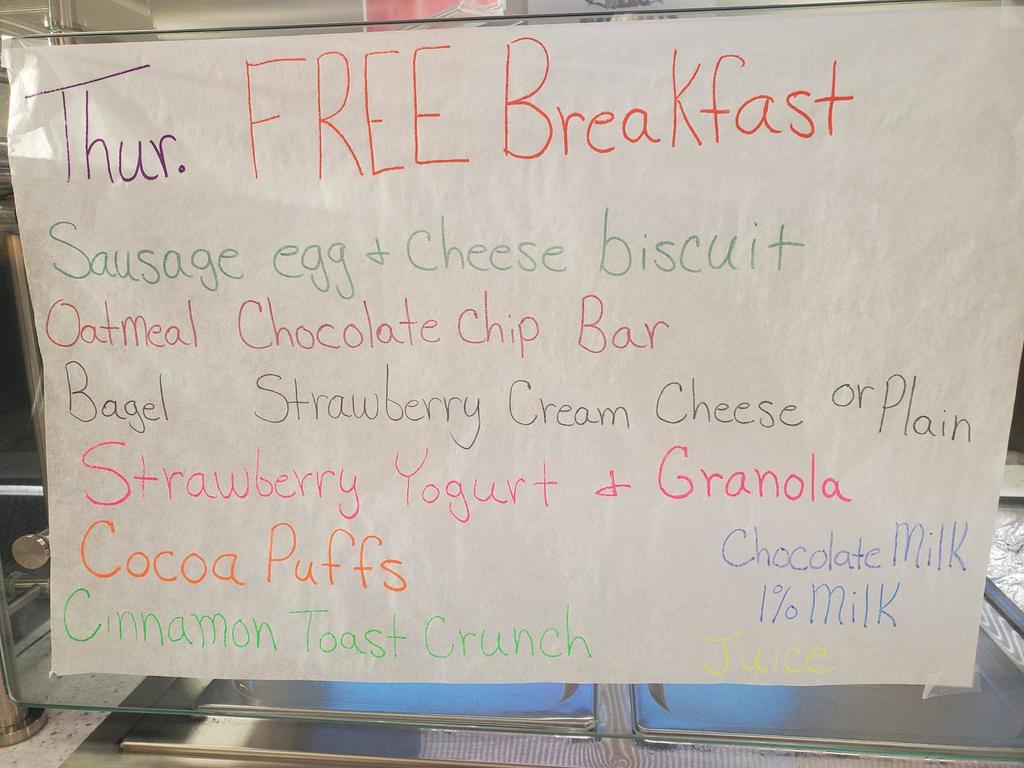 Thur. FREE Breakfast
Sausage egg & Cheese biscuit
Oatmeal Chocolate Chip Bar
Bagel Strawberry Cream Cheese or Plain
Strawberry Yogurt & Granola
Cocoa Puffs
Cinnamon Toast Crunch
Chocolate Milk
1% Milk
Juice